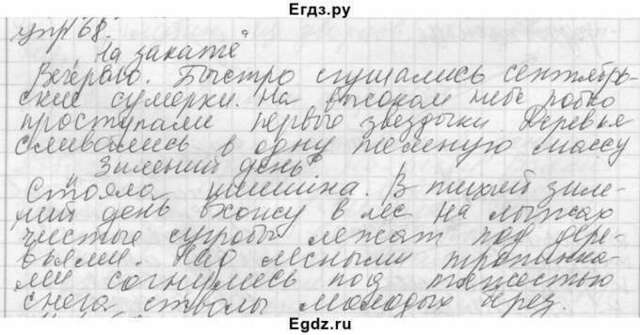 Егдз.ру
упр 68.
На закате
Вечерело. Быстро сгущались сентябрь-
ские сумерки. На высоком небе робко
проступали первые звёздочки деревья
сливались в одну тёмную массу
Зимний день
Стояла тишина. В тихий зим-
ний день вхожу в лес на лыжах
чистые сугробы лежат под дере-
вьями. Над лесными тропинка-
ми согнулись под тяжестью
снега стволы молодых берёз.
Egdz.ru